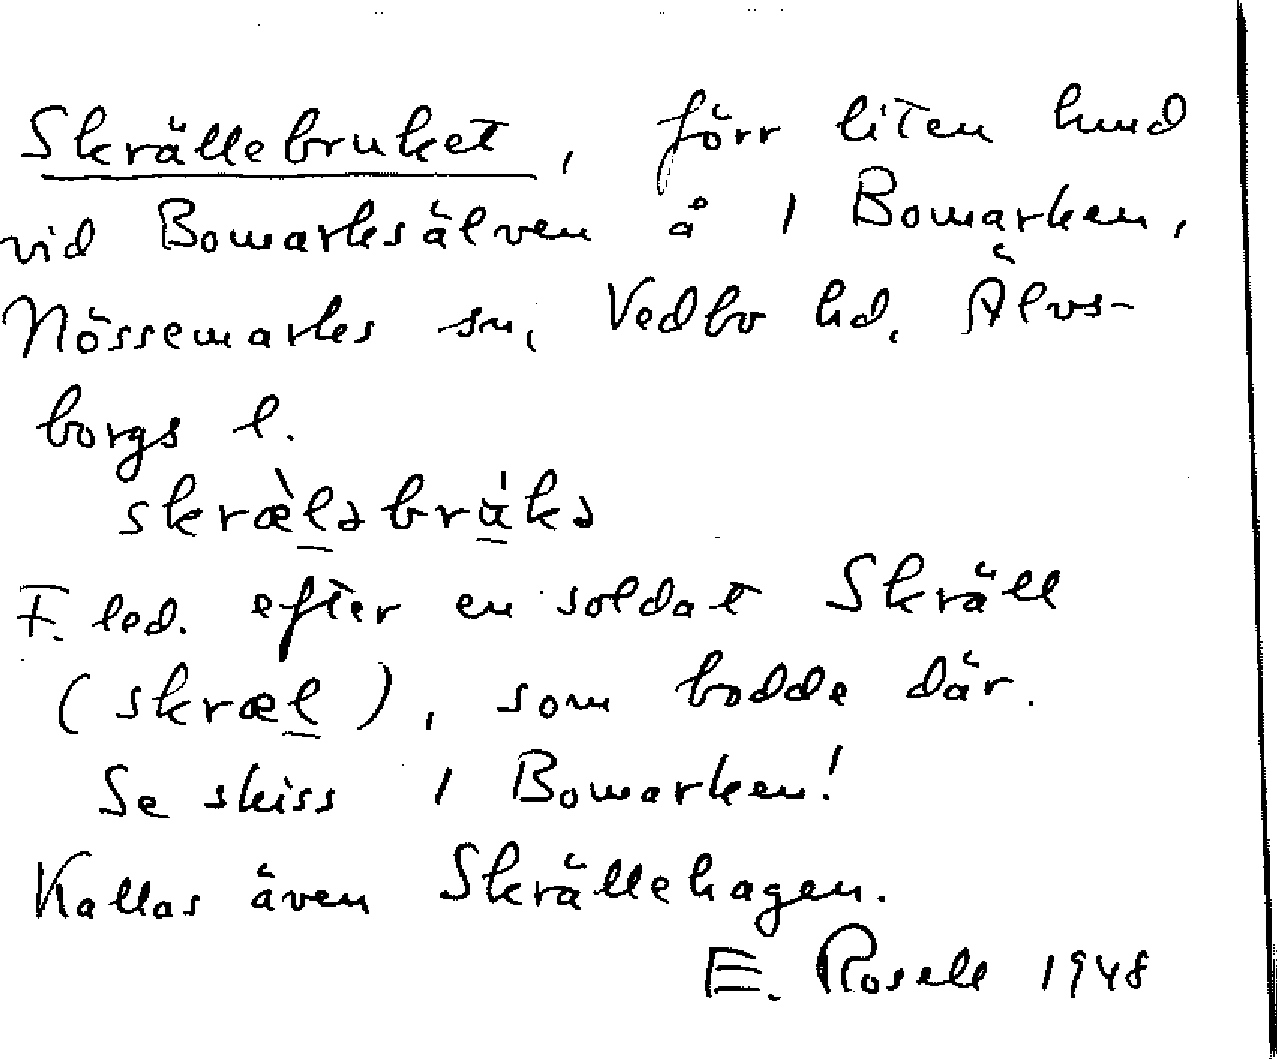 Skrällebruket, förr liten hmd
vid Bomarksälven å 1 Bomarken,
Nössemarks sn, Vedbo hd. Älvs-
borgs l.
skræ̀l̲əbru̲̍kə
F. led. efter en soldat Skräll
(skræl̲), som bodde där.
Se skiss 1 Bomarken!
Kallas även Skrällehagen.
E. Rosell 1948